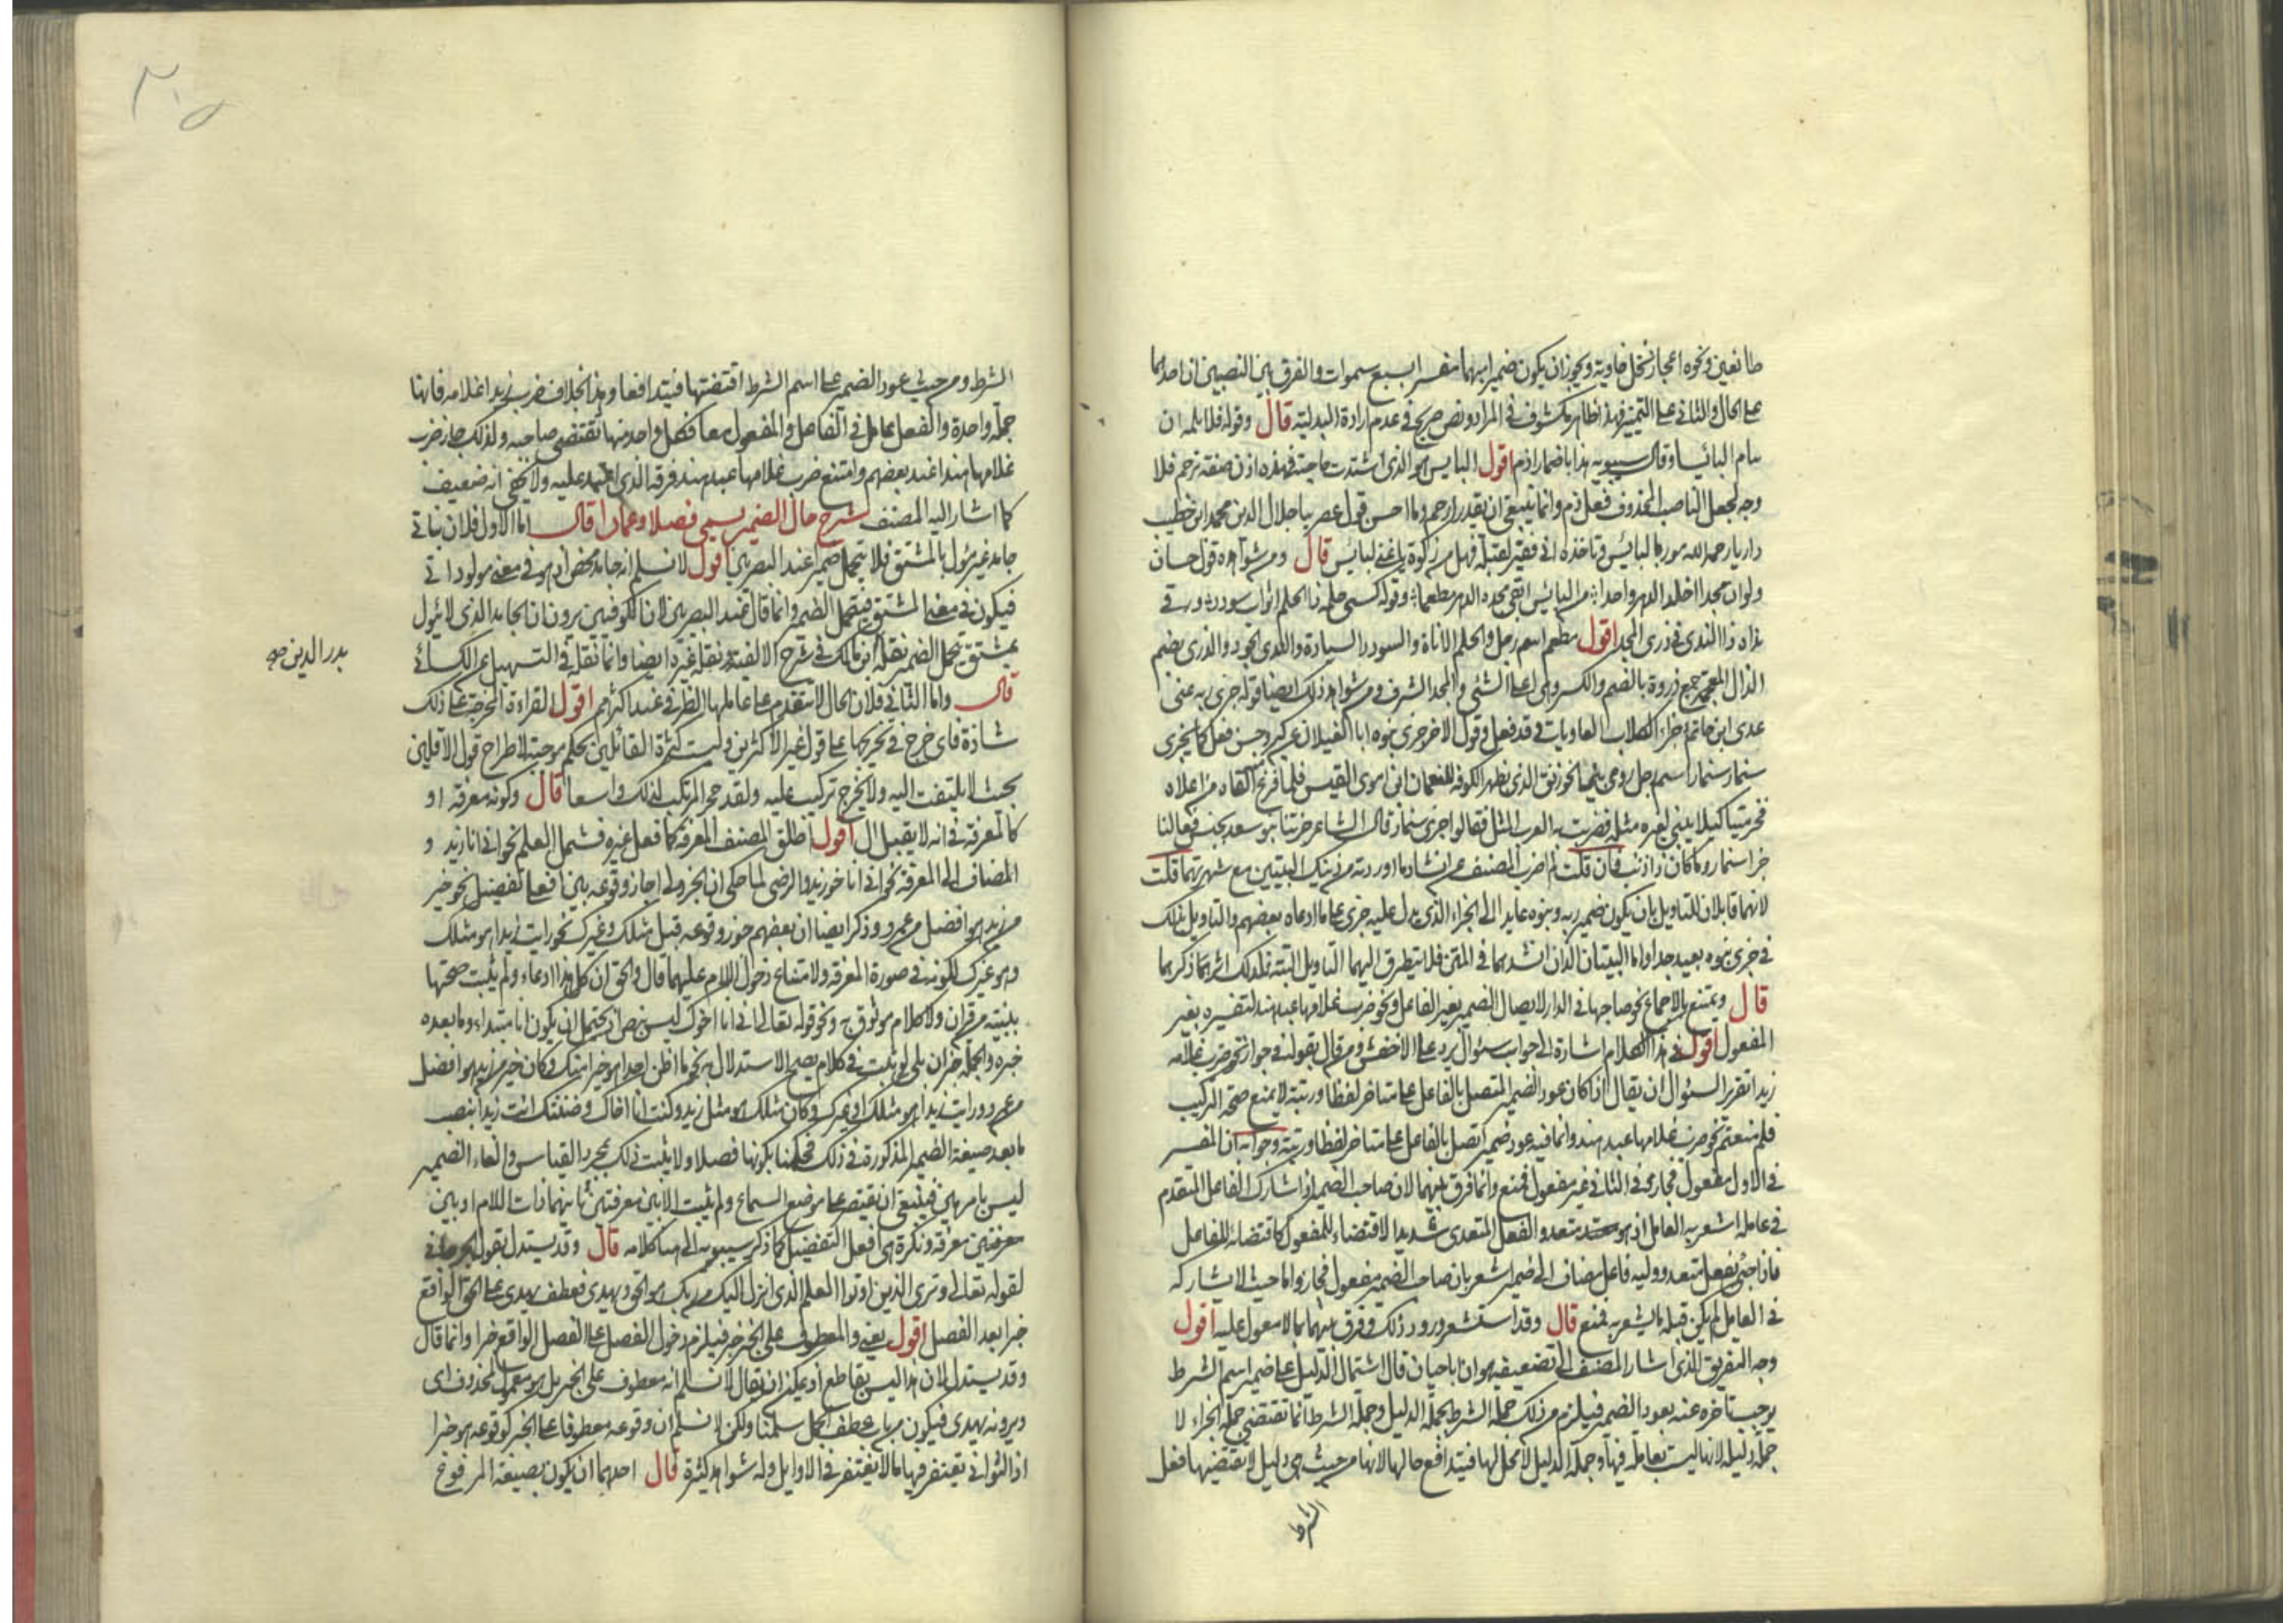 طائعين ونحوه اعجاز نخل خاوية ويجوز ان يكون ضميرا مبهما مفسرا بسبع سموات والفرق بين النصبين ان احدهما
على الحال والثاني على التمييز فهذا ظاهر مكشوف في المراد ونص صريح في عدم ارادة البدلية قال وقوله فلا تلمه ان
ينام البائسا وقال سيبويه هذا باضمار اذم اقول البايس هو الذي اشتدت حاجته فهذه اذن صفة ترحم فلا
وجه لجعل الناصب المحذوف فعل ذم وانما ينبغي ان يقدر ارحم وما احسن قول عصرينا جلال الدين محمد ابن خطيب
داريا رحمه الله موريا بالبائس وتاخذه في فقير لقبله فهل من زكوة يا غني لبايس قال ومن شواهده قول حسان
ولو ان مجدا اخلد الدهر واحدا من البائس ابقى مجده الدهر مطعما وقوله كسى حلمه ذا الحلم اثواب سودد ورقى
نداه ذا الندى في ذرى المجد اقول مطعم اسم رجل والحلم الاناة والسودد السيادة والندى الجود والذرى بضم
الذال المعجمة جمع ذروة بالضم والكسر وهي اعلا الشئ والمجد الشرف ومن شواهد ذلك ايضا قوله جزى ربه عني
عدى ابن حاتم جزاء الكلاب العاويات وقد فعل وقول الاخر جزى بنوه ابا الغيلان عن كبر وحسن فعل كما يجزى
سنمار سنمار اسم رجل رومي بنى الخورنق الذي بظهر الكوفة للنعمان ابن امرئ القيس فلما فرغ القاه من اعلاه
فخر ميتا كيلا يبني لغيره مثله فضربت به العرب المثل فقالوا جزى سنمار قال الشاعر جزتنا بنو سعد بحسن فعالنا
جزا سنمار وما كان ذا ذنب فان قلت لم اضرب المصنف عن انشاد ما اوردته من ذينك البيتين مع شهرتهما قلت
لانهما قابلان للتاويل بان يكون ضمير ربه وبنوه عايدا الى الجزاء الذي يدل عليه جزى على ما ادعاه بعضهم والتاويل بذلك
في جزى بنوه بعيد جدا واما البيتان اللذان انشدهما في المتن فلا يتطرق اليهما التاويل البتة فلذلك اثرهما ذكرهما
قال ويمتنع بالاجماع نحو صاحبها في الدار لايصال الضمير بغير الفاعل ونحو ضرب غلامها عبد هند لتفسيره بغير
المفعول اقول في هذا الكلام اشارة الى جواب سئوال يرد على الاخفش ومن قال بقوله في جواز نحو ضرب غلامه
زيدا تقرير السئوال ان يقال اذا كان عود الضمير المتصل بالفاعل على متاخر لفظا ورتبة لا يمنع صحة التركيب
فلم منعتم نحو ضرب غلامها عبد هند وانما فيه عود ضمير اتصل بالفاعل على متاخر لفظا ورتبة وجوابه ان المفسر
في الاول مفعول فجاز وفي الثاني غير مفعول فمنع وانما فرق بينهما لان صاحب الضمير اذا شارك الفاعل المتقدم
في عامله اشعر به العامل اذ هو متعد والفعل المتعدى شديد الاقتضاء للمفعول كاقتضائه للفاعل
فاذا جئ بفعل متعد ووليه فاعل مضاف الى ضمير اشعر بان صاحب الضمير مفعول فجاز واما حيث لا يشاركه
في العامل لم يكن قبله ما يشعر به فمنع قال وقد استشعر ورود ذلك وفرق بينهما بما لا معول عليه اقول
وجه التفريق الذي اشار المصنف الى تضعيفه هو ان ابا حيان قال اشتمال الدليل على ضمير اسم الشرط
يوجب تاخره عنه بعود الضمير فيلزم من ذلك جملة الشرط لجملة الدليل وجملة الشرط انما تقتضي جملة الجزاء لا
جملة دليله لانها ليست بعاملة فيها وجملة الدليل لا محل لها فيتدافع حالها لانها من حيث هي دليل لا تقتضيها فعل
الشرط
الشرط ومن حيث عود الضمير على اسم الشرط اقتضتها فيتدافعا وهذا بخلاف ضرب زيدا غلامه فانها
جملة واحدة والفعل عامل في الفاعل والمفعول معا فكل واحد منهما تقتضي صاحبه ولذلك جاز ضرب
غلامها هندا عند بعضهم وامتنع ضرب غلامها عبد هند فرقه الذي اعتمد عليه ولا يخفى انه ضعيف
كما اشار اليه المصنف شرح حال الضمير يسمى فصلا وعمادا قال اما الاول فلان بناتي
جامد غير مئول بالمشتق فلا يتحمل ضميرا عند البصريين اقول لا نسلم انه جامد محض اذ هو في معنى مولوداتي
فيكون في معنى المشتق فيتحمل الضمير وانما قال عند البصريين لان الكوفيين يرون ان الجامد الذي لا يئول
بمشتق يتحمل الضمير نقله ابن مالك في شرح الالفية ونقله غيره ايضا وانما نقله في التسهيل عن الكسائي
بدر الدين صح
قال واما الثاني فلان الحال لا تتقدم على عاملها الظرفي عند اكثرهم اقول القراءة المخرجة على ذلك
شاذة فاي حرج في تخريجها على قول غير الاكثرين وليست كثرة القائلين بحكم موجبة لاطراح قول الاقلين
بحيث لا يلتفت اليه ولا يخرج تركيب عليه ولقد حجر المرتكب لذلك واسعا قال وكونه معرفة او
كالمعرفة في انه لا يقبل ال اقول اطلق المصنف المعرفة كما فعل غيره فشمل العلم نحو اني انا زيد و
المضاف الى المعرفة نحو اني انا اخو زيد والرضى لما حكى ان الجزولي اجاز وقوعه بين افعل تفضيل نحو خير
من زيد هو افضل من عمرو وذكر ايضا ان بعضهم جوز وقوعه قبل مثلك وغيرك نحو رايت زيدا هو مثلك
وهو غيرك لكونه في صورة المعرفة ولامتناع دخول اللام عليهما قال والحق ان كل هذا ادعاء ولم يثبت صحتها
ببينة من قران ولا كلام موثوق به ونحو قوله تعالى اني انا اخوك ليس بنص اذ يحتمل ان يكون انا مبتداء وما بعده
خبره والجملة خبر ان بلى لو ثبت في كلام يصح الاستدلال به نحو ما اظن احدا هو خيرا منك وكان خير من زيد هو افضل
من عمرو ورايت زيدا هو مثلك او غيرك وكان مثلك هو مثل زيد وكنت انا اخاك وضننتك انت زيدا بنصب
ما بعد صيغة الضمير المذكورة في ذلك لحكمنا بكونها فصلا ولا يثبت ذلك بمجرد القياس والغاء الضمير
ليس بامر هين فينبغي ان يقتصر على موضع السماع ولم يثبت الا بين معرفتين ثانيهما ذات اللام او بين
معرفتين معرفة ونكرة هي افعل التفضيل كما ذكر سيبويه الى هنا كلامه قال وقد يستدل بقول الجرجاني
لقوله تعالى وترى الذين اوتوا العلم الذي انزل اليك من ربك هو الحق ويهدى فعطف يهدى على الحق الواقع
خبرا بعد الفصل اقول يعني والمعطوف على الخبر خبر فيلزم دخول الفصل على الفصل الواقع خبرا وانما قال
وقد يستدل لان هذا ليس بقاطع اذ يمكن ان يقال لا نسلم انه معطوف على الخبر بل هو معمول لمحذوف اى
ويرونه يهدى فيكون من باب عطف الجمل سلمنا ولكن لا نسلم ان وقوعه معطوفا على الخبر كوقوعه هو خبرا
اذ الثواني تغتفر فيها ما لا يغتفر في الاوايل وله شواهد كثيرة قال احدهما ان يكون بصيغة المرفوع